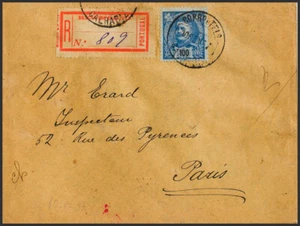 R
Nº 809
PORTUGAL
100
Mr Erard
Inspecteur
52 Rue des Pyrenées
Paris